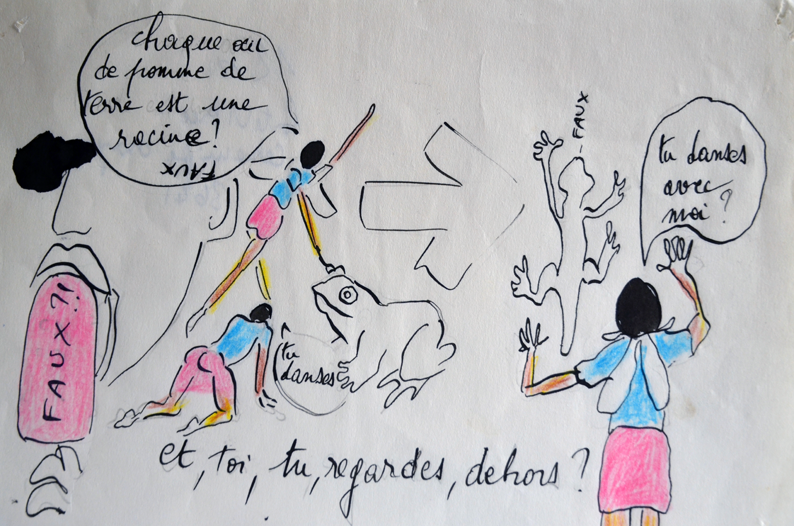 chaque œil
de pomme de
terre est une
racine?
FAUX
FAUX
tu danses
avec
moi ?
FAUX?!
tu
danses
et, toi, tu, regardes, dehors ?